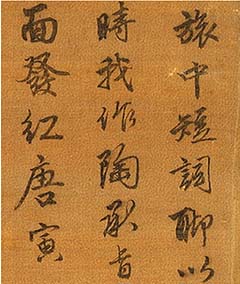 旅中短詞聊以
時我作陶承旨
面發紅唐寅